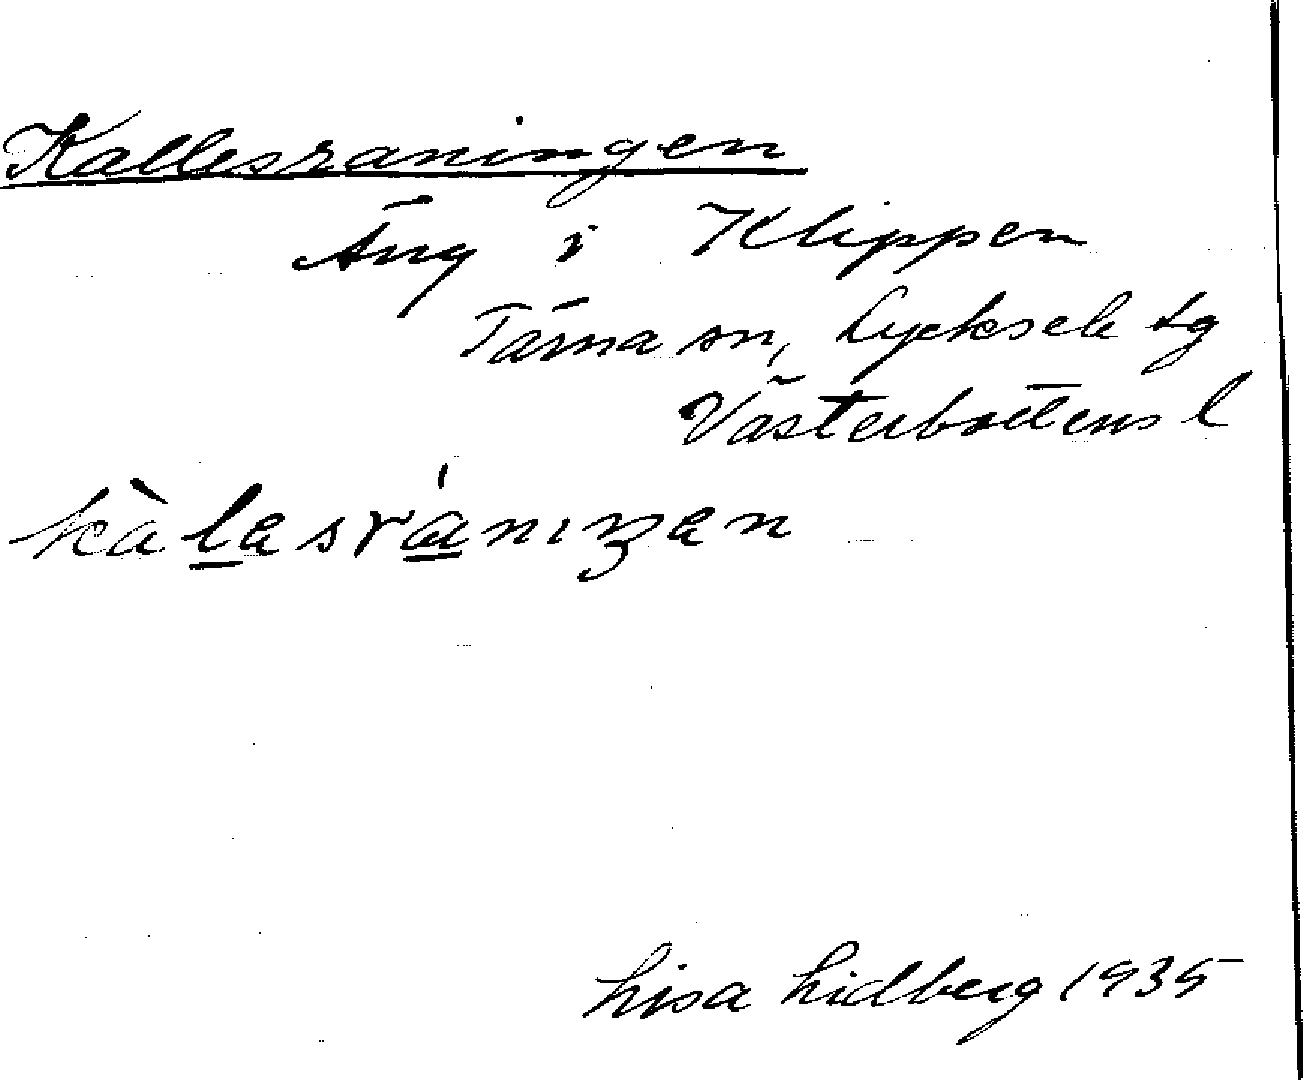 Kallesraningen
Äng i Klippen
Tärna sn, Lycksele tg
Västerbottens l
kàlesrániŋen
Lisa Lidberg 1935